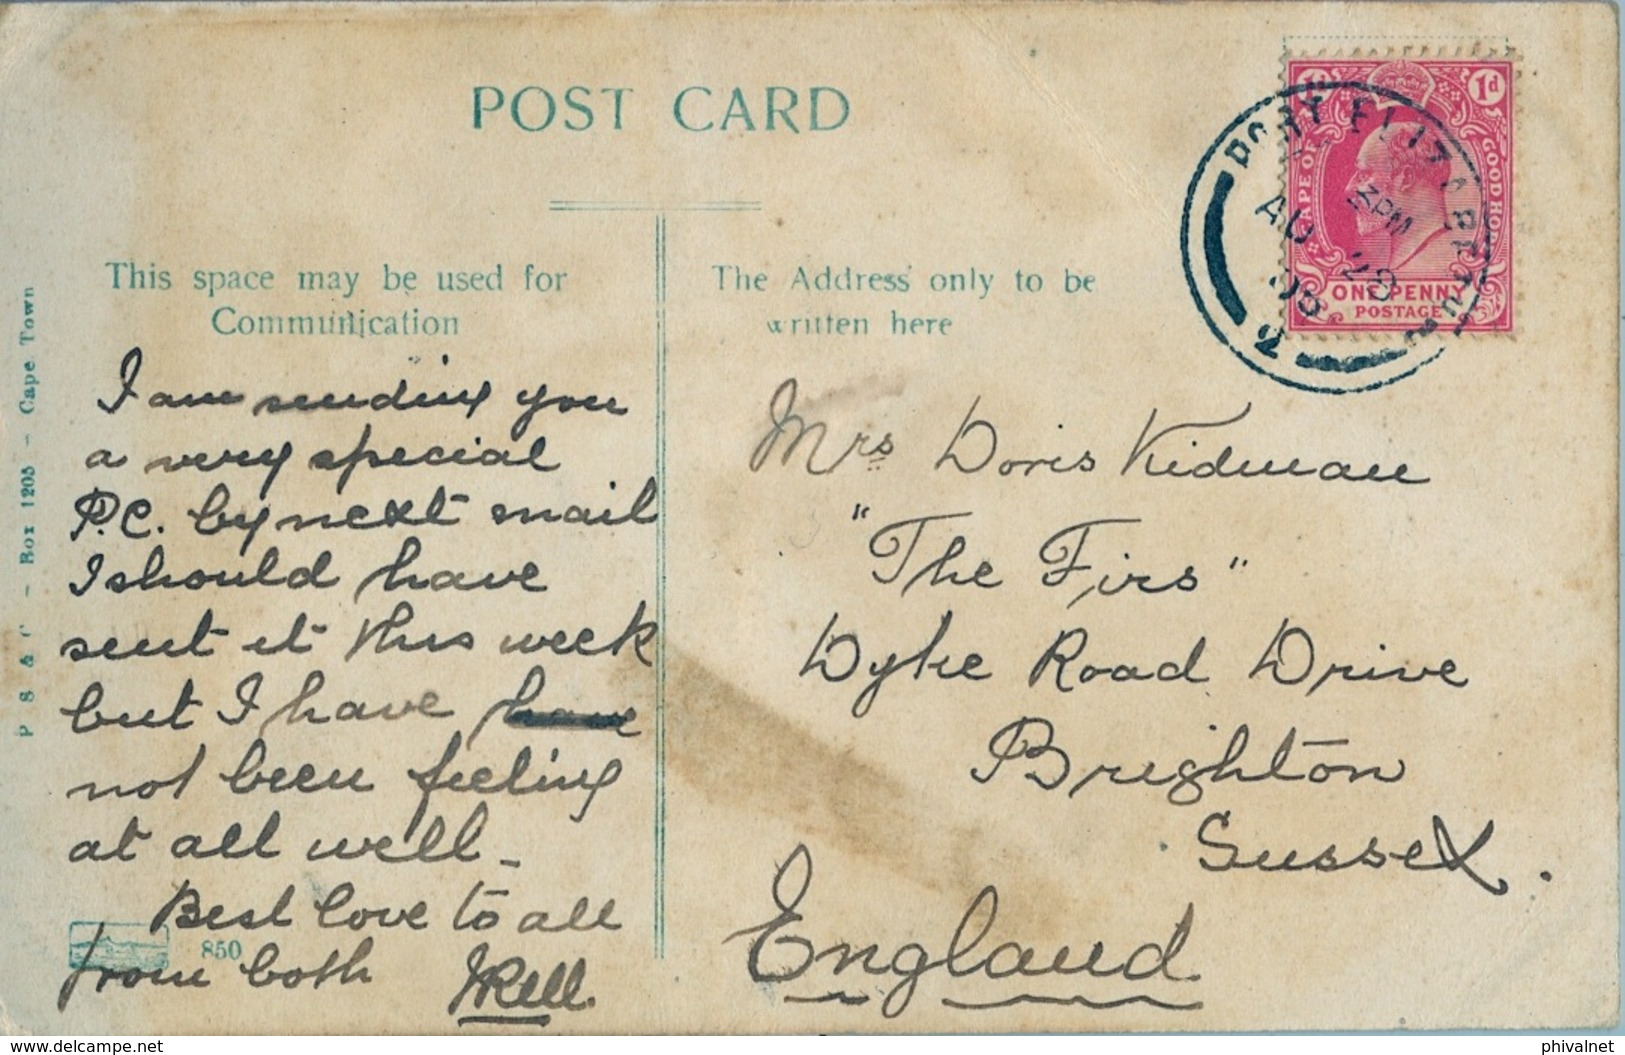 POST CARD
This space may be used for
Communication
The Address only to be
written here
P S & C - Box 1205 - Cape Town
I am sending you
a very special
P.C. by next mail
I should have
sent it this week
but I have have
not been feeling
at all well -
Best love to all
from both
850
Mrs Doris Kidman
"The Firs"
Dyke Road Drive
Brighton
Sussex.
England
CAPE OF GOOD HOPE
1d
ONE PENNY
POSTAGE
PORT ELIZABETH
3 PM
AU 28
06
2
delcampe.net
phivalnet